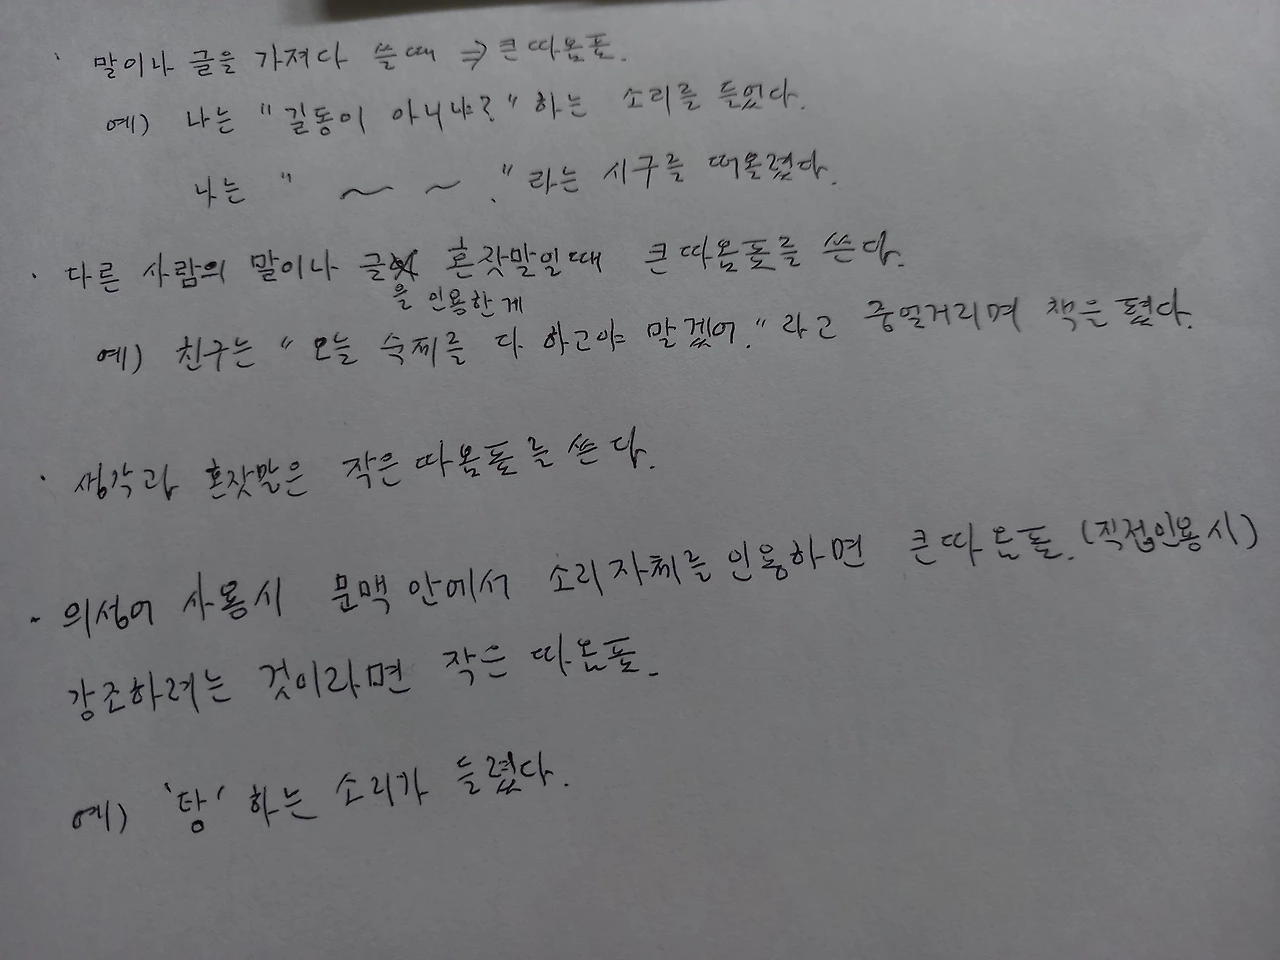 · 말이나 글을 가져다 쓸때 ⇒ 큰따옴표.
예) 나는 "길동이 아니냐?" 하는 소리를 들었다.
나는 " ~ ~ ." 라는 시구를 떠올렸다.
· 다른 사람의 말이나 글 혼잣말일때 큰따옴표를 쓴다.
을 인용한게
예) 친구는 "오늘 숙제를 다 하고야 말겠어." 라고 중얼거리며 책을 폈다.
· 생각과 혼잣말은 작은따옴표를 쓴다.
- 의성어 사용시 문맥 안에서 소리자체를 인용하면 큰따옴표. (직접인용시)
강조하려는 것이라면 작은 따옴표.
예) '탕' 하는 소리가 들렸다.